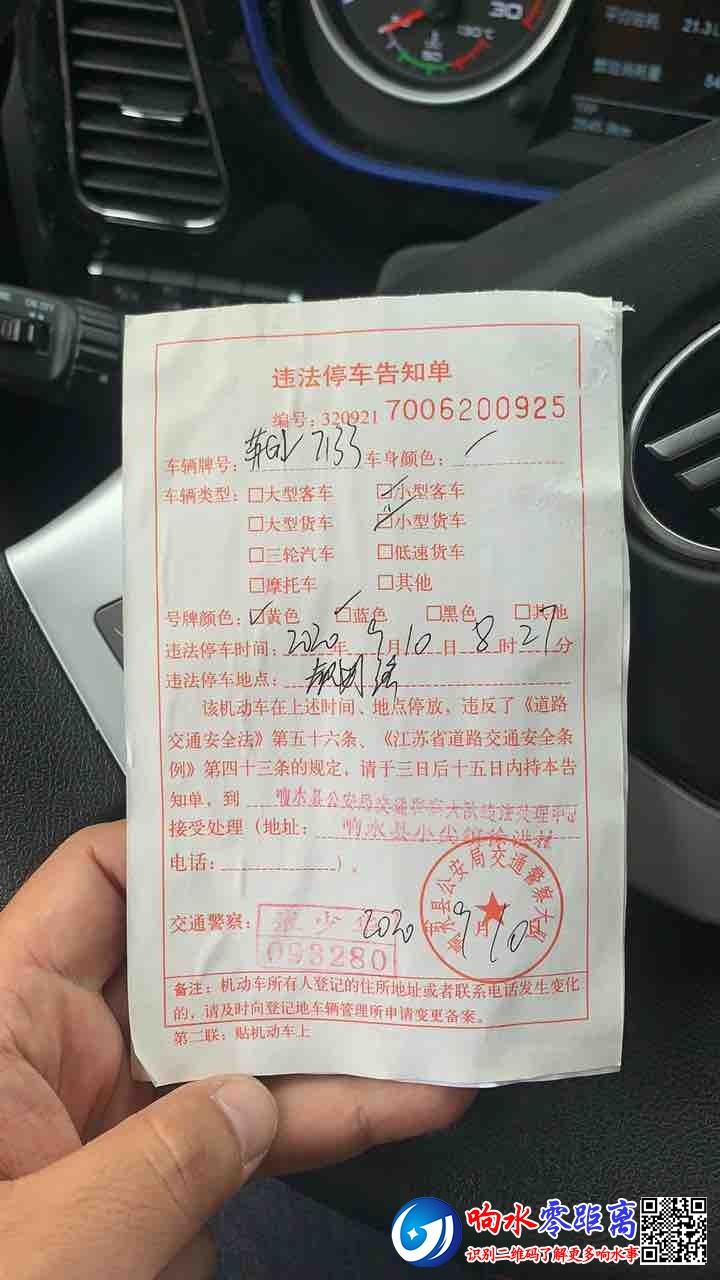 30
130℃
60
平均油耗
21.3
违法停车告知单
编号: 320921 7006200925
车辆牌号: 7133 车身颜色:
车辆类型: □大型客车 ☑小型客车
□大型货车 ☑小型货车
□三轮汽车 □低速货车
□摩托车 □其他
号牌颜色: ☑黄色 ☑蓝色 □黑色 □其他
违法停车时间: 2020年9月10日8时27分
违法停车地点:
该机动车在上述时间、地点停放，违反了《道路
交通安全法》第五十六条、《江苏省道路交通安全条
例》第四十三条的规定，请于三日后十五日内持本告
知单，到 响水县公安局交通警察大队违法处理中心
接受处理（地址: 响水县小尖
电话: ）。
交通警察: 张少华 093280
响水县公安局交通警察大队
2020 9月10
备注: 机动车所有人登记的住所地址或者联系电话发生变化
的，请及时向登记地车辆管理所申请变更备案。
第二联: 贴机动车上
响水零距离
识别二维码了解更多响水事